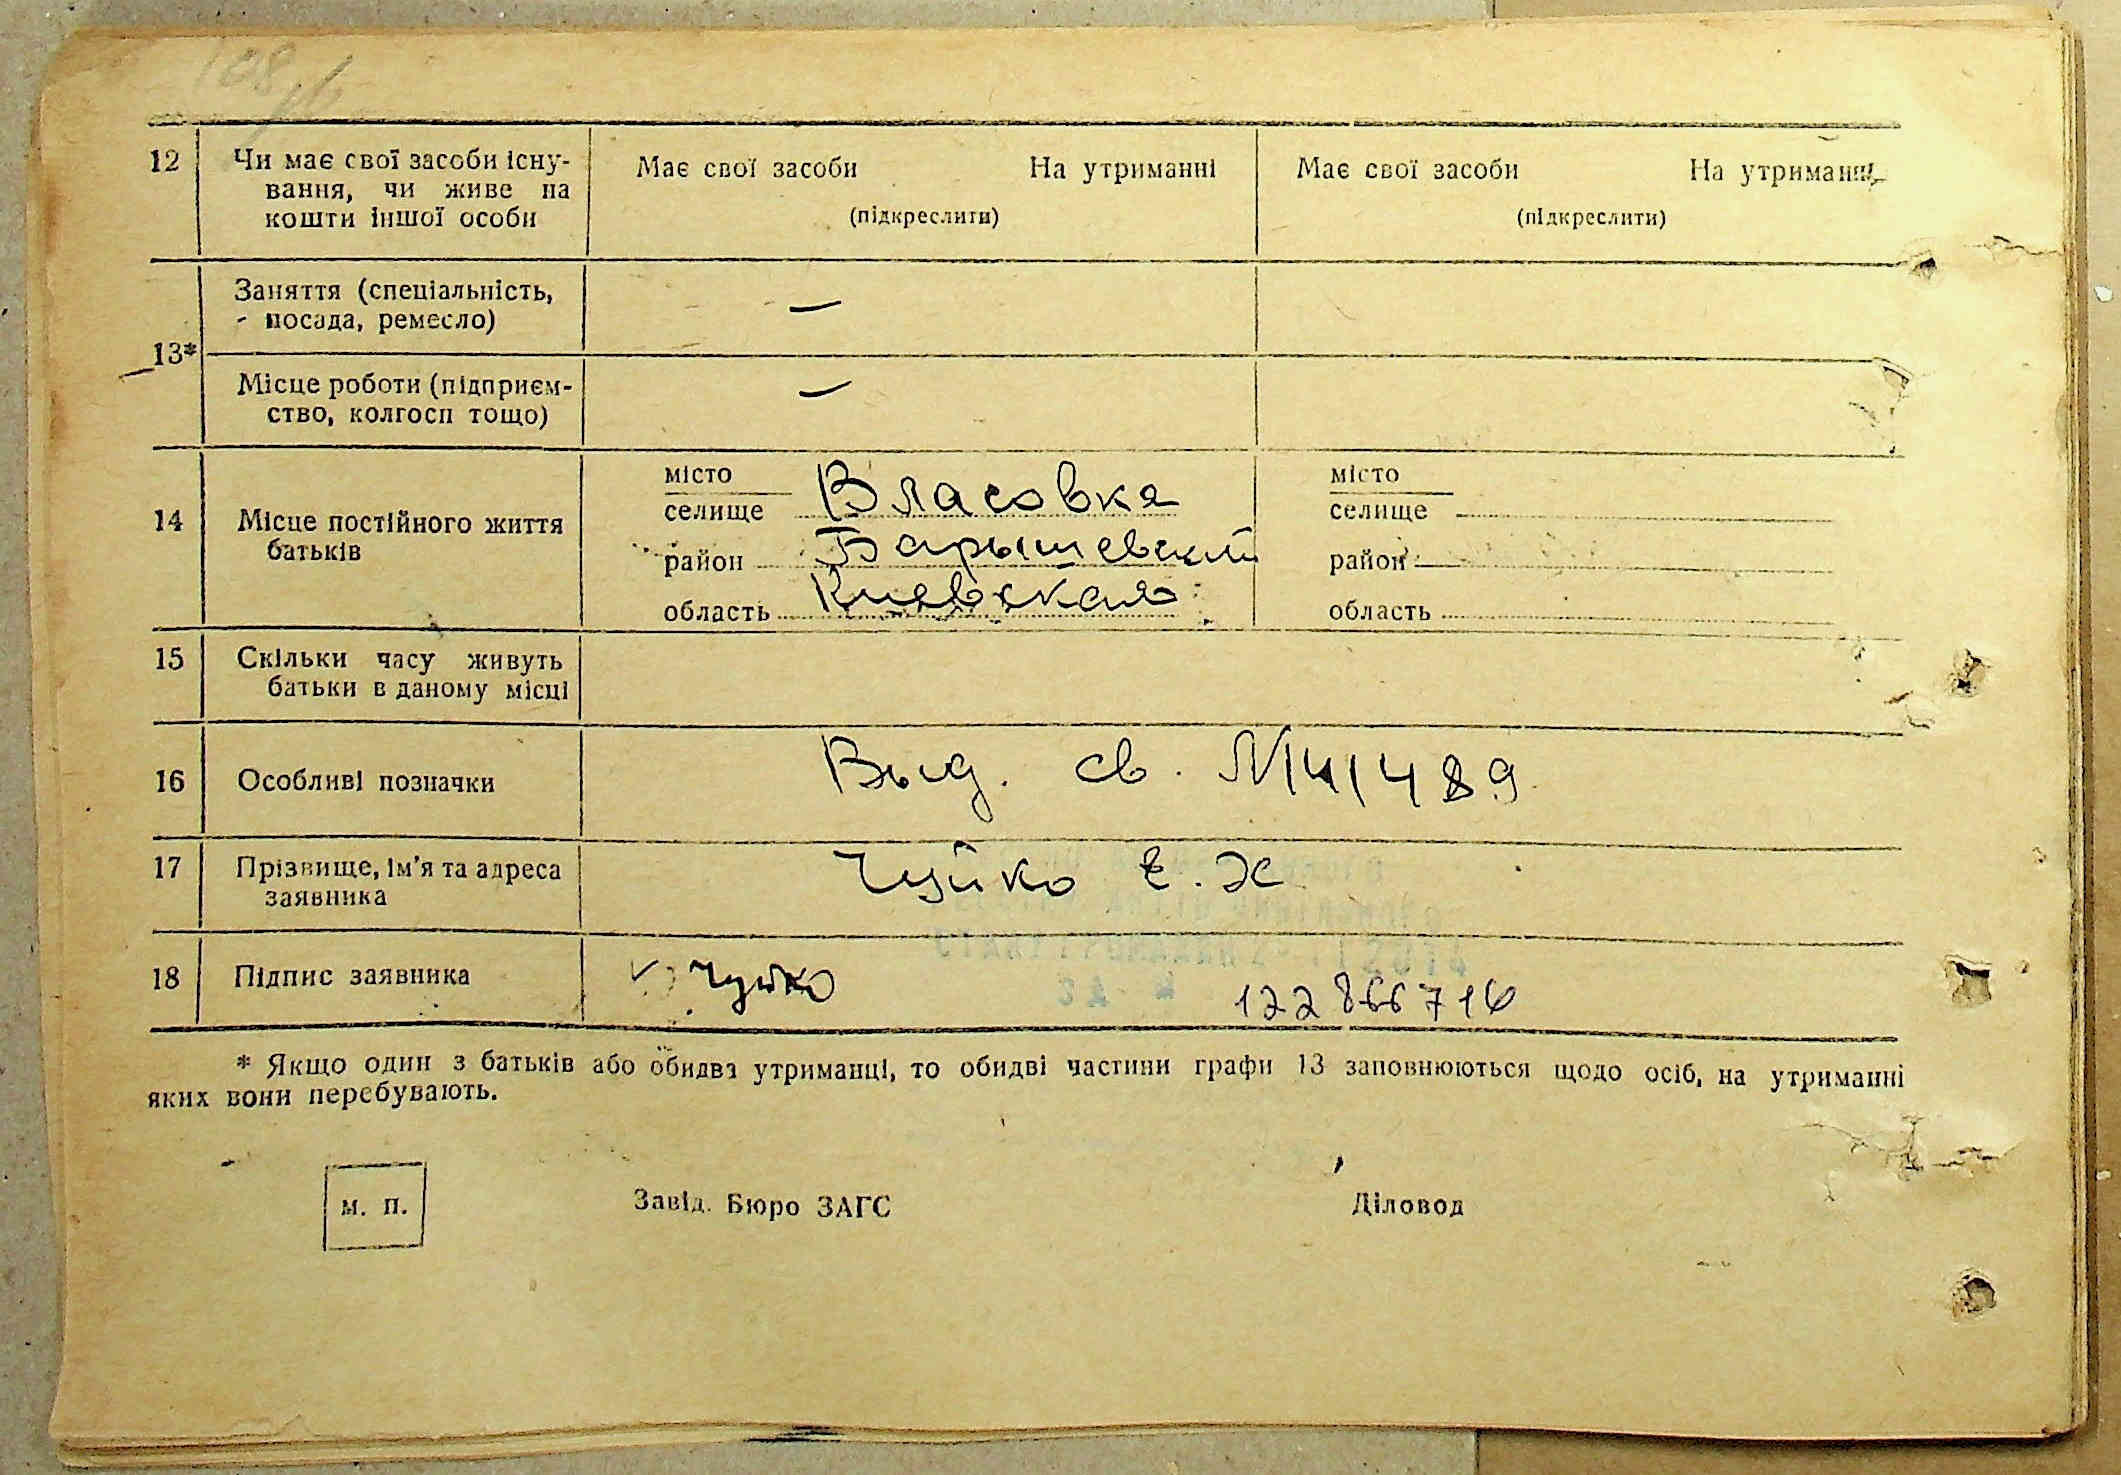 108
12 Чи має свої засоби існу- Має свої засоби На утриманні Має свої засоби На утриманні
вання, чи живе на
кошти іншої особи (підкреслити) (підкреслити)
Заняття (спеціальність, —
посада, ремесло)
13*
Місце роботи (підприєм- —
ство, колгосп тощо)
місто місто
14 Місце постійного життя селище Власовка селище
батьків район Барышевский район
область Киевская область
15 Скільки часу живуть
батьки в даному місці
16 Особливі позначки Выд. св. №141489
17 Прізвище, ім'я та адреса Чуйко Е. Ж
заявника
18 Підпис заявника Чуйко 122866716
* Якщо один з батьків або обидва утриманці, то обидві частини графи 13 заповнюються щодо осіб, на утриманні
яких вони перебувають.
м. п. Завід. Бюро ЗАГС Діловод